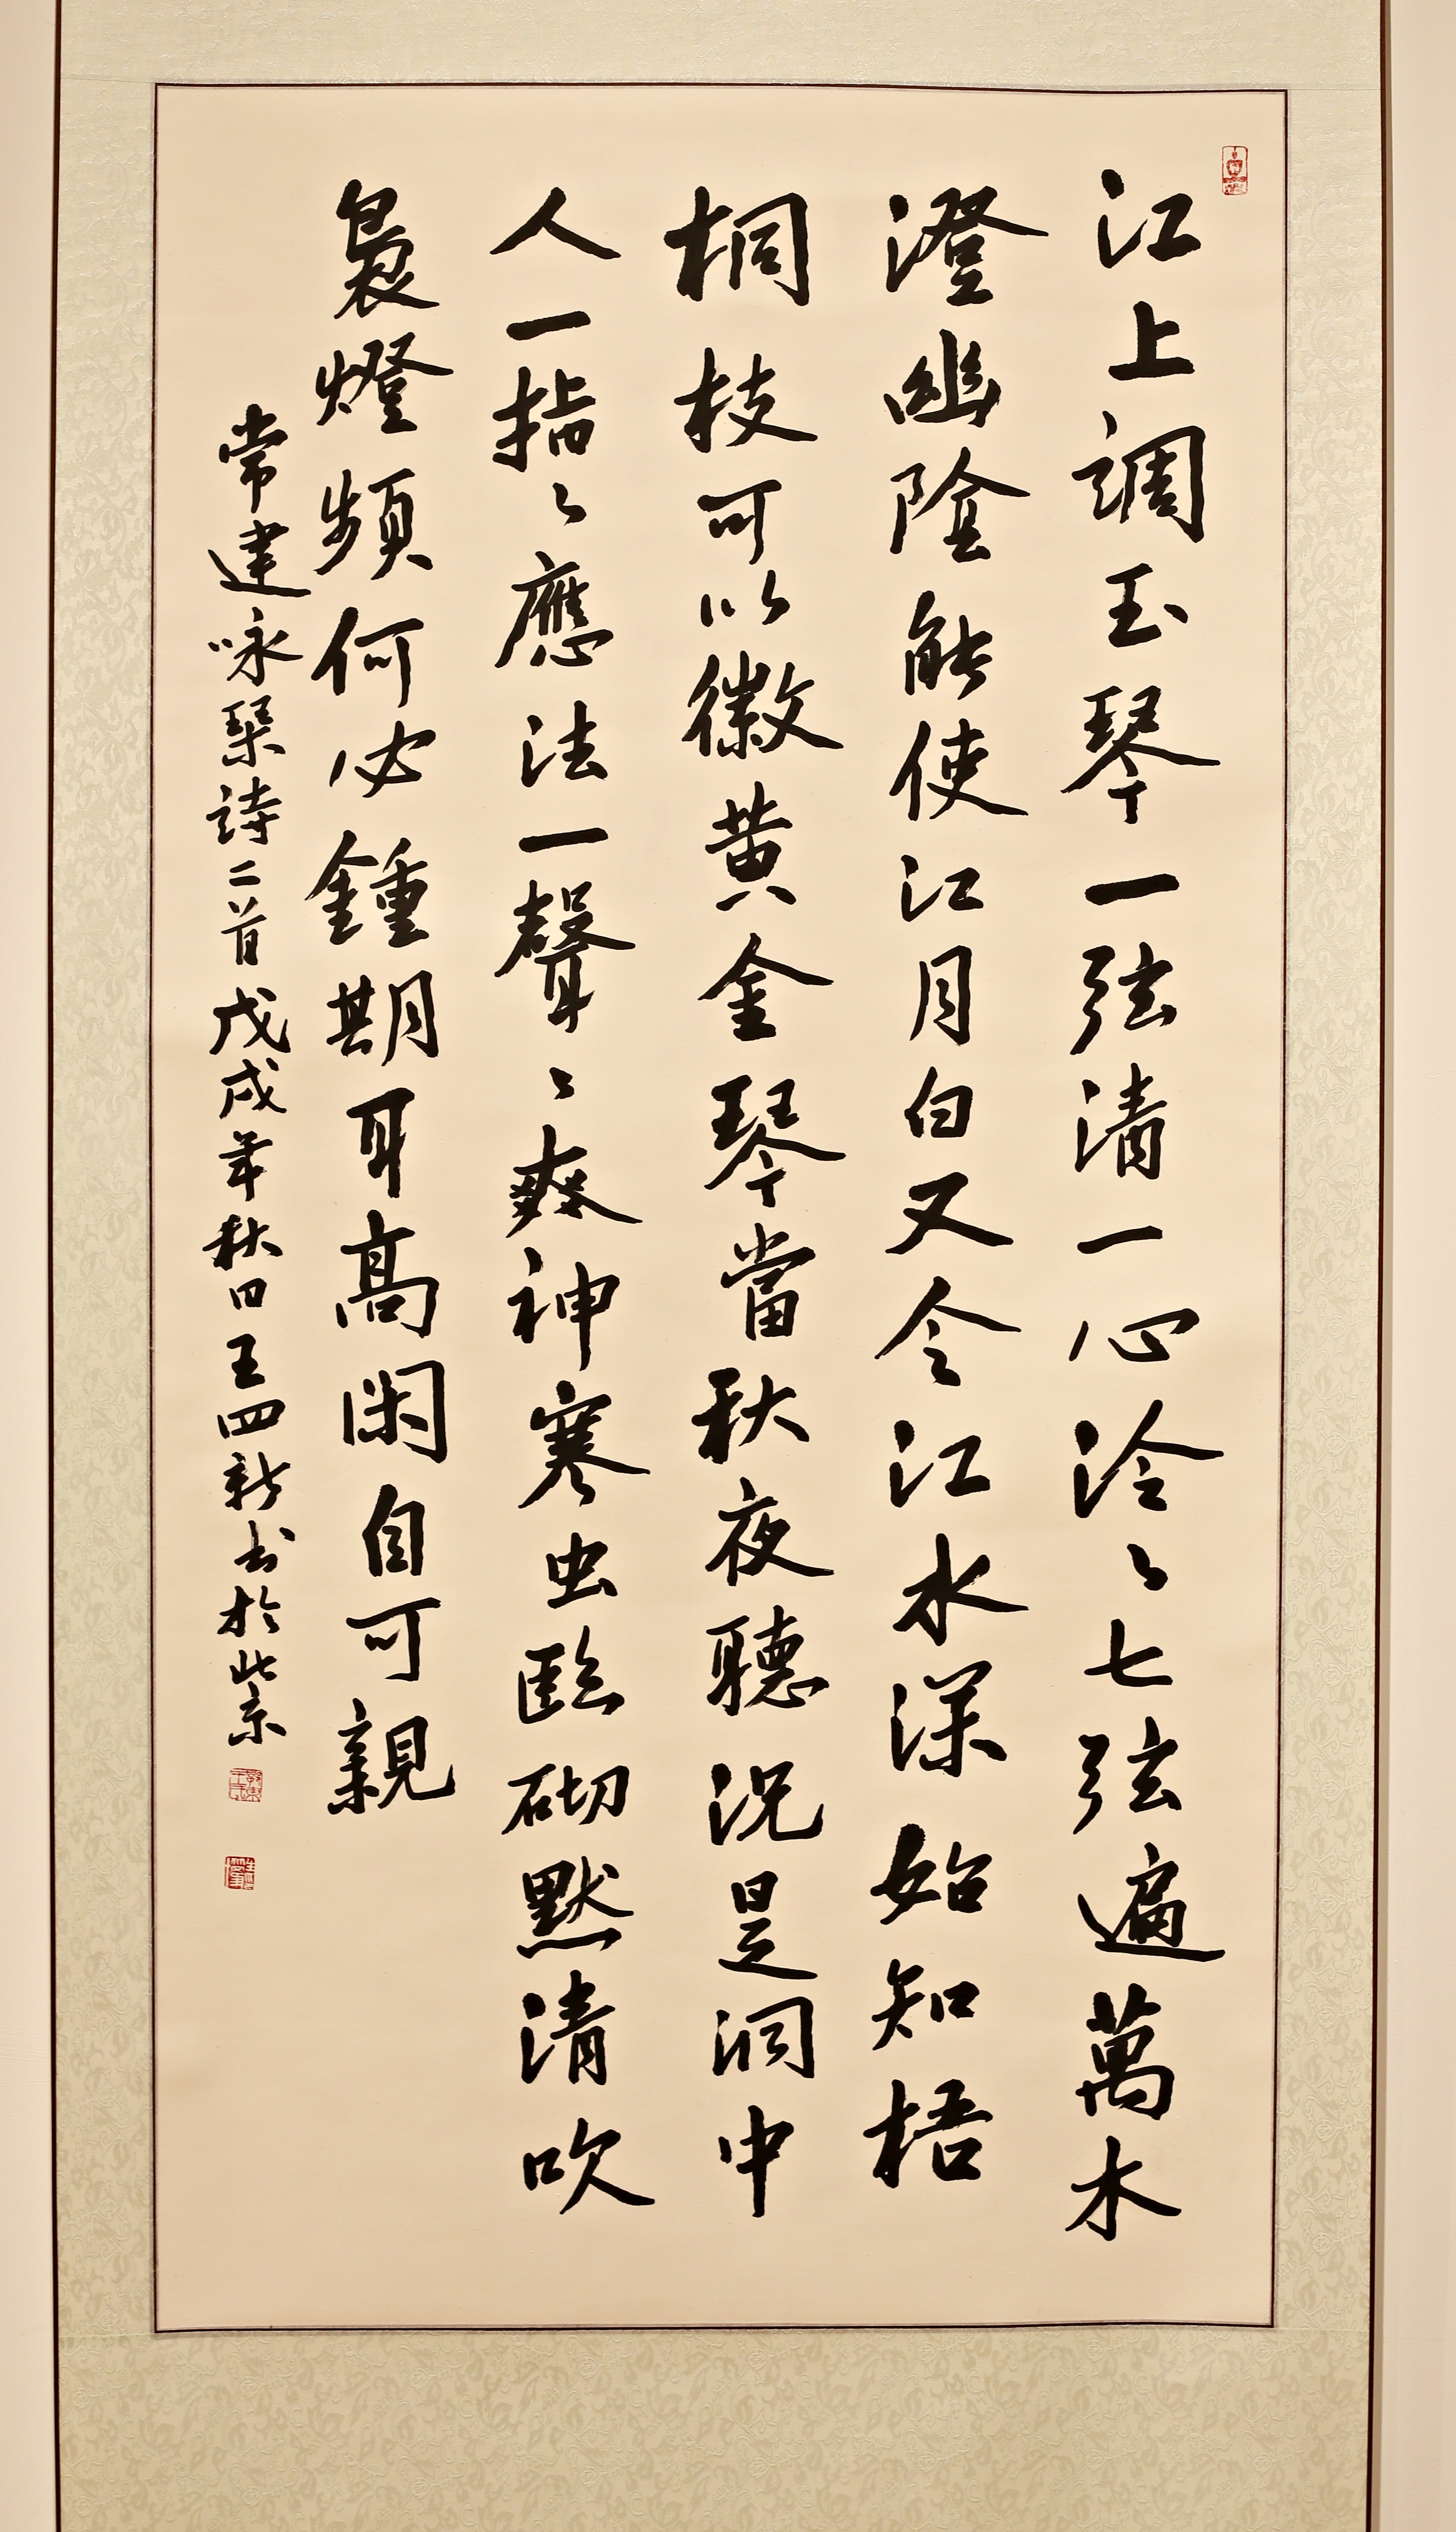 江上調玉琴一弦清一心泠〻七弦遍萬木
澄幽陰能使江月白又令江水深始知梧
桐枝可以徽黄金琴當秋夜聽況是洞中
人一指〻應法一聲〻爽神寒虫臨砌默清吹
裊燈頻何必鍾期耳高闲自可親
常建咏琴詩二首戊戌年秋日王四新书於北京